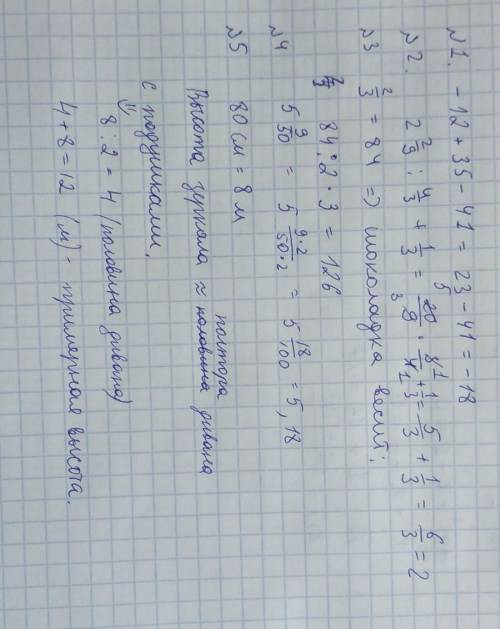 №1. -12 + 35 - 41 = 23 - 41 = -18
№2. 2 2/9 : 4/3 + 1/3 = 20/9 · 3/4 + 1/3 = 5/3 + 1/3 = 6/3 = 2
№3 2/3 = 84 => шоколадка весит:
84 : 2 · 3 = 126
№4 5 9/50 = 5 9·2/50·2 = 5 18/100 = 5,18
№5 80 см = 8 м
Высота зеркала ≈ полтора дивана
с подушками.
8 : 2 = 4 (половина дивана)
4 + 8 = 12 (м) - примерная высота.